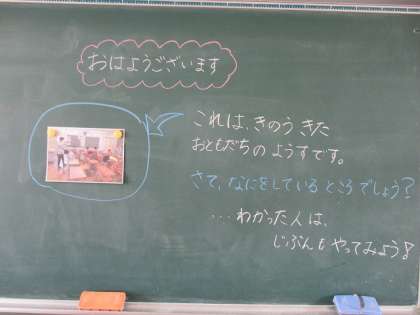 おはようございます
これは、きのう きた
おともだちの ようすです。
さて、なにをしているところでしょう?
・・・わかった人は、
じぶんもやってみよう!